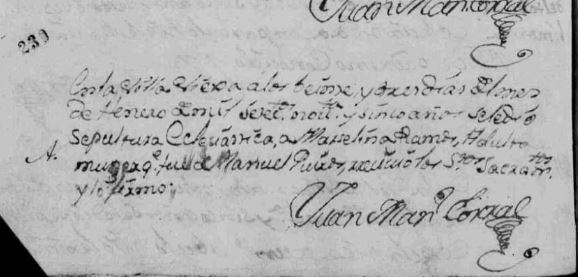 Juan Man. Corral
230
En la Villa de Xerez a los veinte y tres dias del mes
de Henero de mil setets. nobta. y sinco años se le dió
Sepultura Eclesiástica, a Marselina Ramos, Adulta
A. muger q. fué de Manuel Peres, recivió los Stos. Sacramtos.
y lo firmo;
Juan Manl. Corral